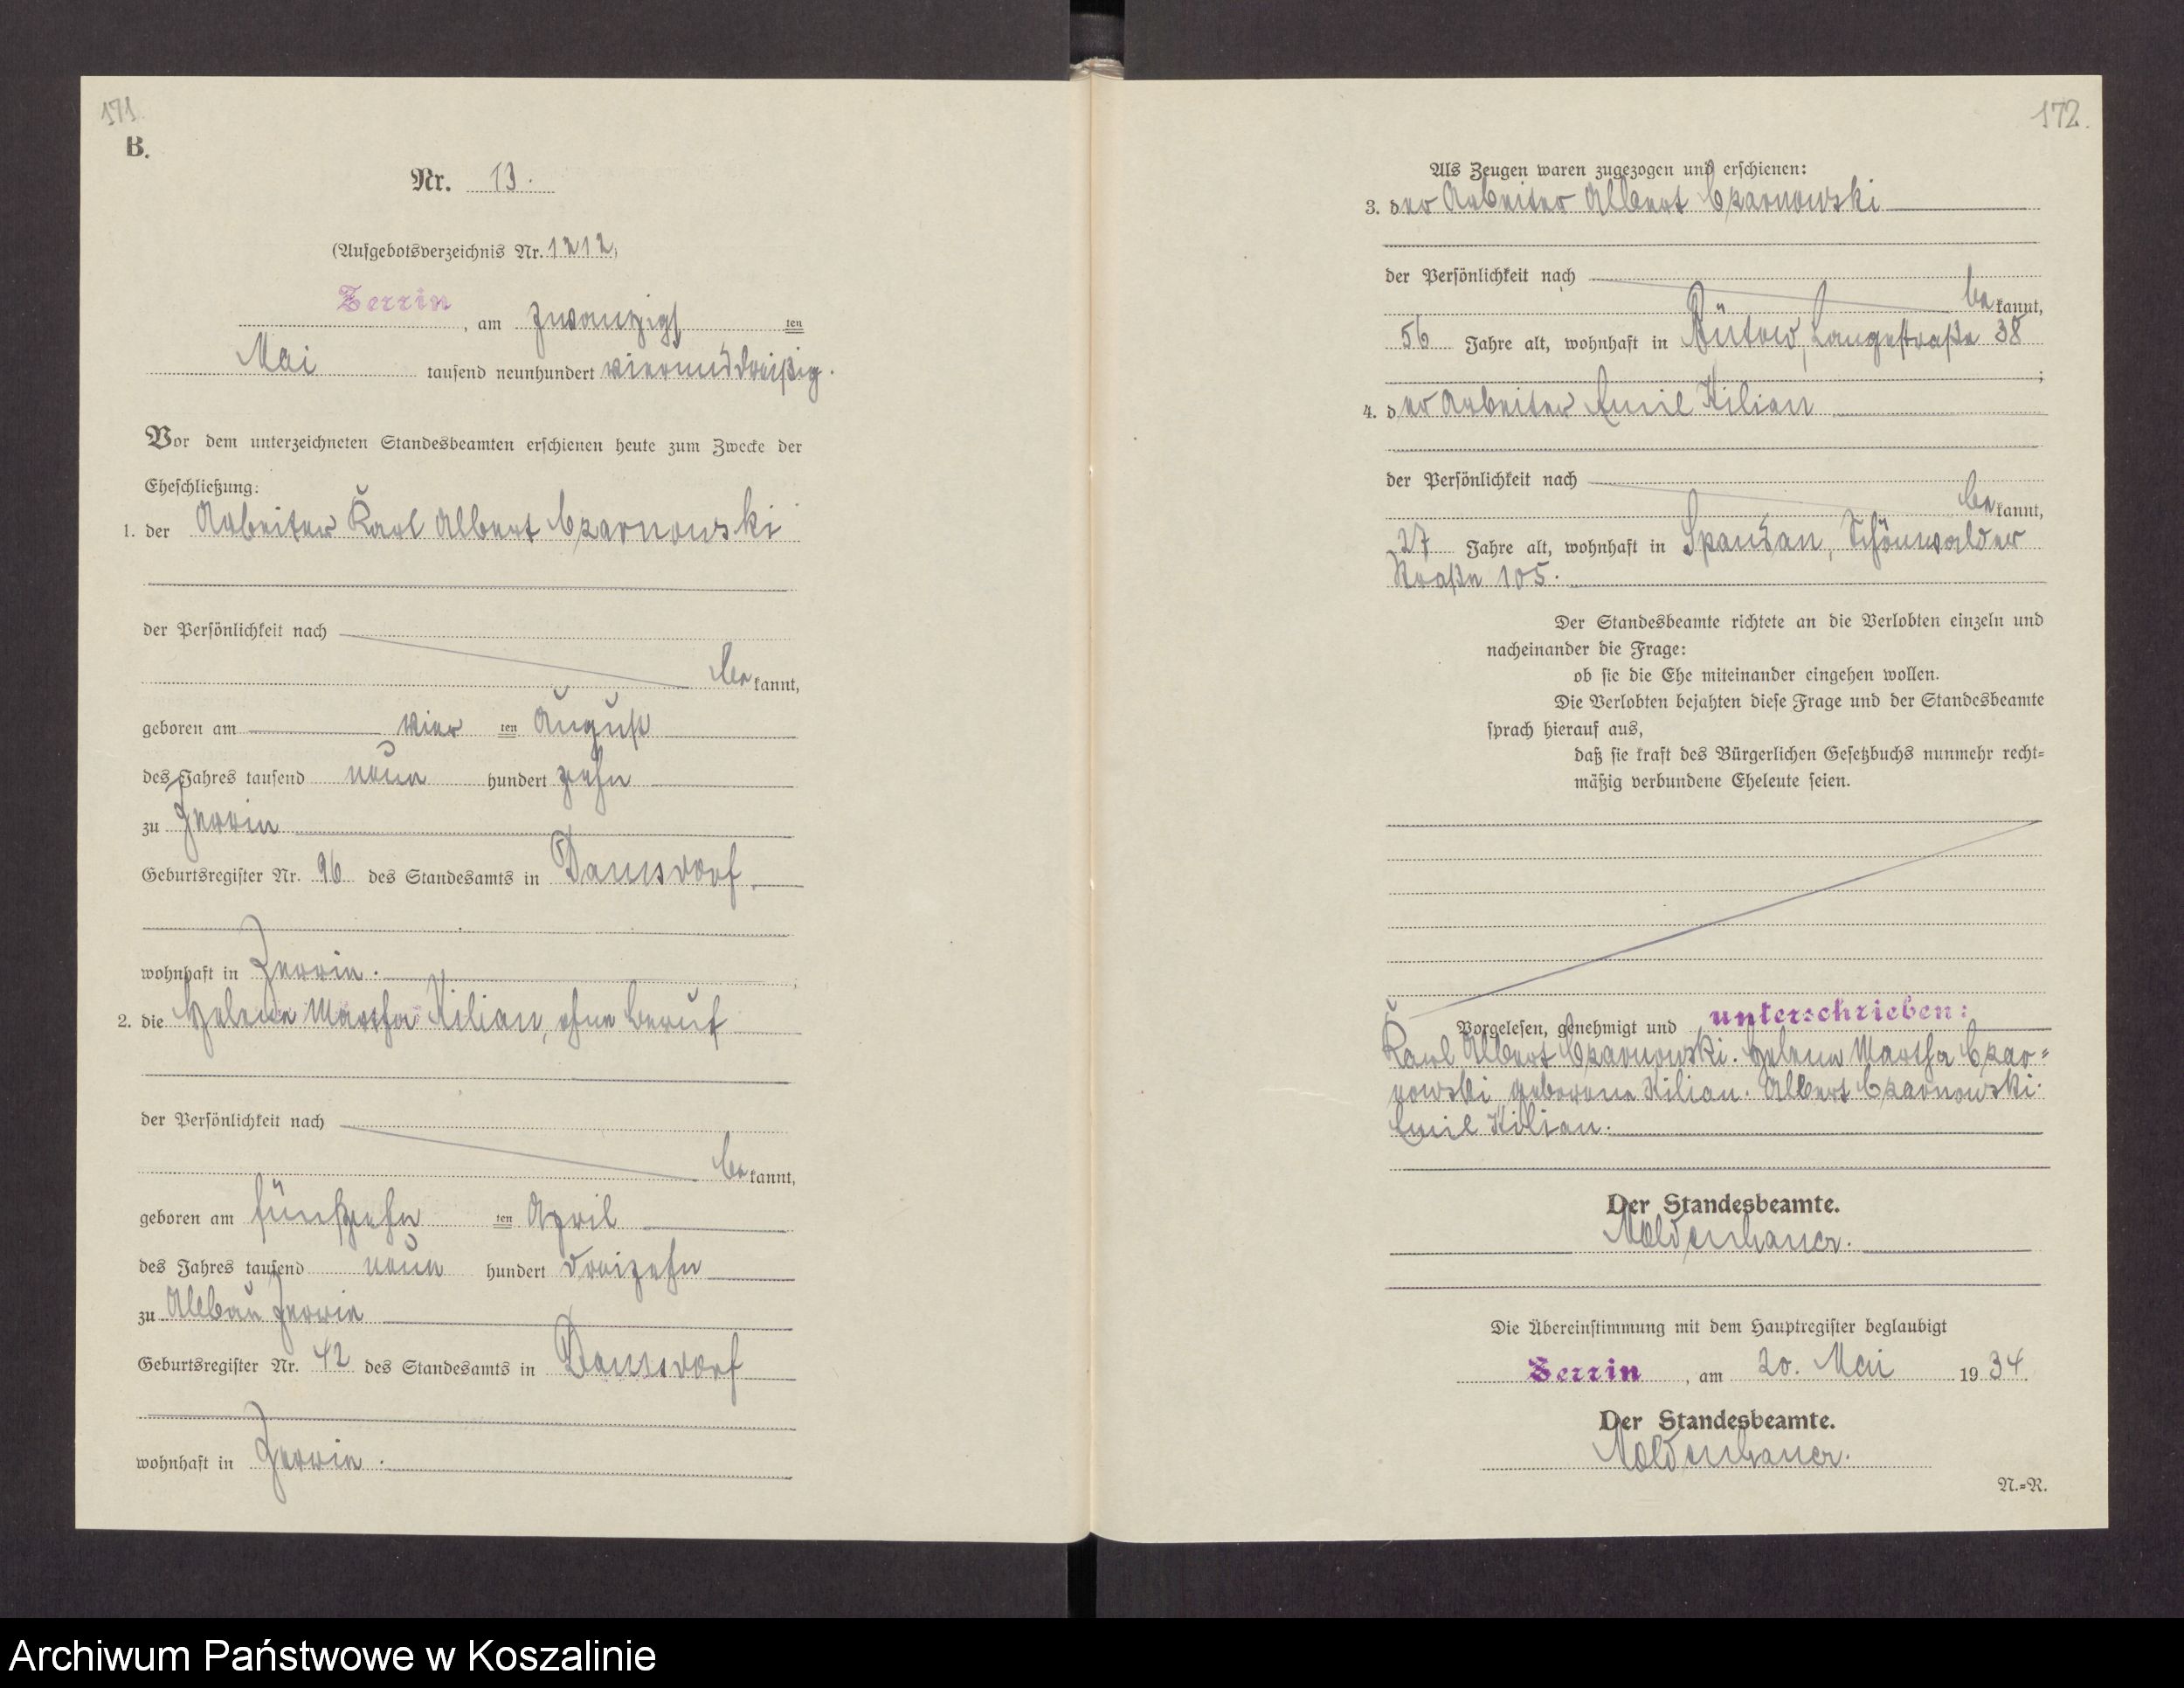 171.
B.
Nr. 13.
(Aufgebotsverzeichnis Nr. 1212)
Zerrin, am zwanzigsten
Mai tausend neunhundert vierunddreißig.
Vor dem unterzeichneten Standesbeamten erschienen heute zum Zwecke der
Eheschließung:
1. der Arbeiter Karl Albert Czarnowski
der Persönlichkeit nach
bekannt,
geboren am vierten August
des Jahres tausend neun hundert zehn
zu Zerrin
Geburtsregister Nr. 96 des Standesamts in Damsdorf
wohnhaft in Zerrin.
2. die Helene Martha Kilian, ohne Beruf
der Persönlichkeit nach
bekannt,
geboren am fünfzehnten April
des Jahres tausend neun hundert dreizehn
zu Abbau Zerrin
Geburtsregister Nr. 42 des Standesamts in Damsdorf
wohnhaft in Zerrin.
172.
Als Zeugen waren zugezogen und erschienen:
3. der Arbeiter Albert Czarnowski
der Persönlichkeit nach
bekannt,
56 Jahre alt, wohnhaft in Bütow, Langestraße 38
;
4. der Arbeiter Emil Kilian
der Persönlichkeit nach
bekannt,
27 Jahre alt, wohnhaft in Spandau, Schönwalder
Straße 105.
Der Standesbeamte richtete an die Verlobten einzeln und
nacheinander die Frage:
ob sie die Ehe miteinander eingehen wollen.
Die Verlobten bejahten diese Frage und der Standesbeamte
sprach hierauf aus,
daß sie kraft des Bürgerlichen Gesetzbuchs nunmehr recht=
mäßig verbundene Eheleute seien.
Vorgelesen, genehmigt und unterschrieben:
Karl Albert Czarnowski. Helene Martha Czar=
nowski geborene Kilian. Albert Czarnowski.
Emil Kilian.
Der Standesbeamte.
Moldenhauer.
Die Übereinstimmung mit dem Hauptregister beglaubigt
Zerrin, am 20. Mai 1934.
Der Standesbeamte.
Moldenhauer.
N.=R.
Archiwum Państwowe w Koszalinie